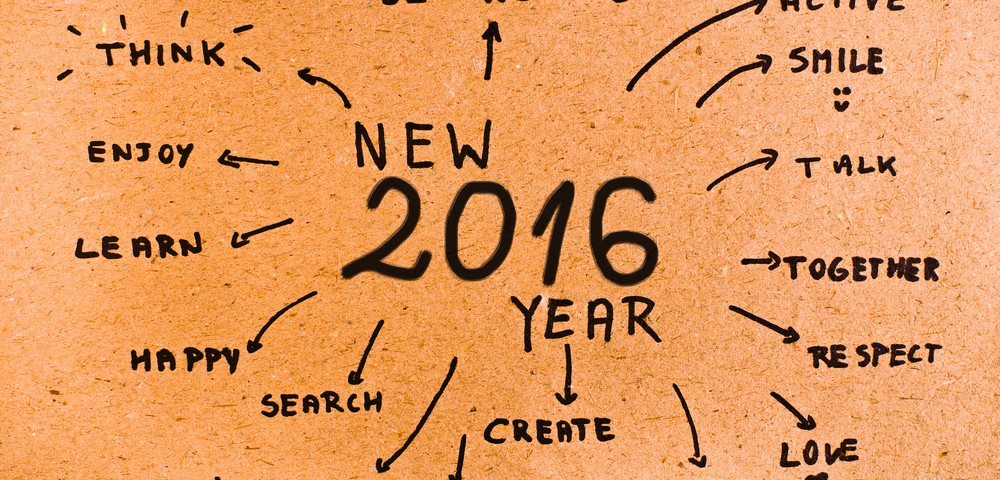 ACTIVE
THINK
SMILE
NEW
ENJOY
TALK
2016
LEARN
TOGETHER
YEAR
HAPPY
RESPECT
SEARCH
CREATE
LOVE